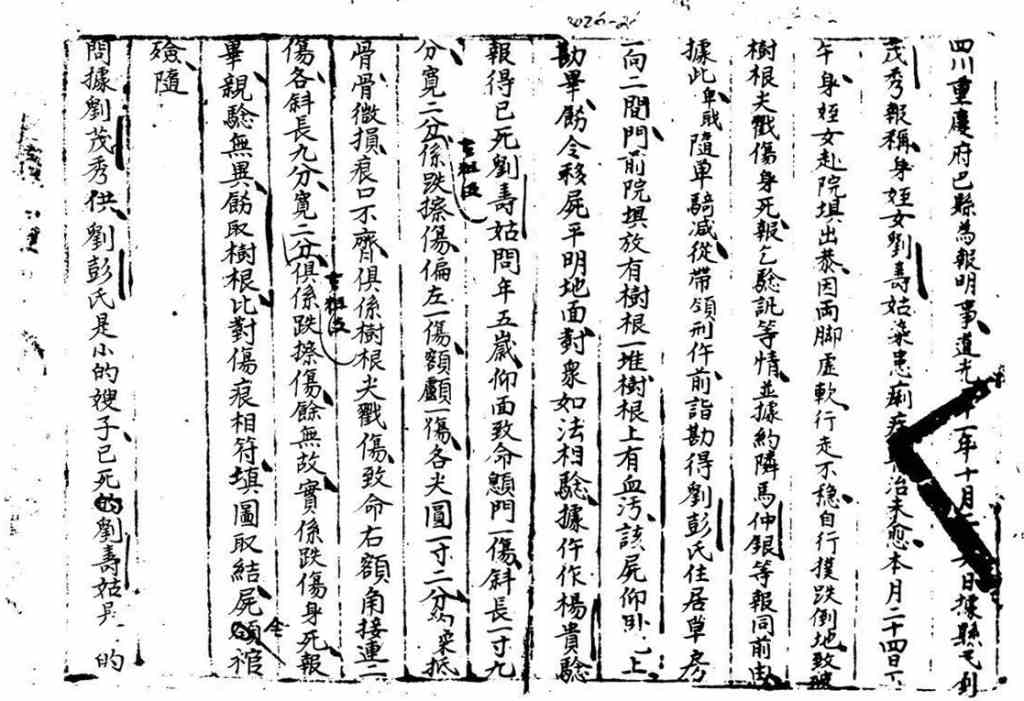 四川重慶府巴縣為報明事道光一年十月日據縣民劉
茂秀報稱身姪女劉壽姑染患痢疾治未愈本月二十四日下
午身姪女赴院埧出恭因両脚虛軟行走不穩自行撲跌倒地致被
樹根尖戳傷身死報乞驗訊等情並據約隣馬仲銀等報同前由
據此卑职隨單騎減從帶領刑仵前詣勘得劉彭氏住居草房
一向二間門前院埧放有樹根一堆樹根上有血汚該屍仰卧上
勘畢飭令移屍平明地面對衆如法相驗據仵作楊貴驗
報得已死劉壽姑問年五歲仰面致命顖門一傷斜長一寸九
分寬二分係跌擦傷偏左一傷額顱一傷各尖圓一寸二分約深抵
骨骨微損痕口不齊俱係樹根尖戳傷致命右額角接連二
傷各斜長九分寬二分俱係跌擦傷餘無故實係跌傷身死報
畢親驗無異飭取樹根比對傷痕相符填圖取結屍棺
殮隨
問據劉茂秀供劉彭氏是小的嫂子已死的劉壽姑是 的